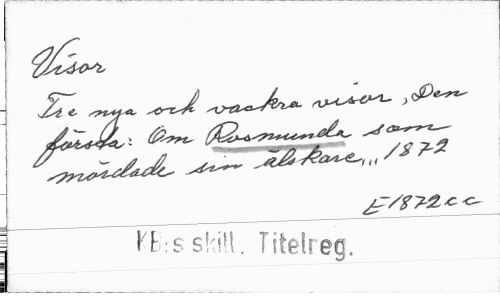 Visor
Tre nya och vackra visor, Den
första: Om Rosmunda som
mördade sin älskare,,, 1872
E1872cc
KB:s skill. Titelreg.